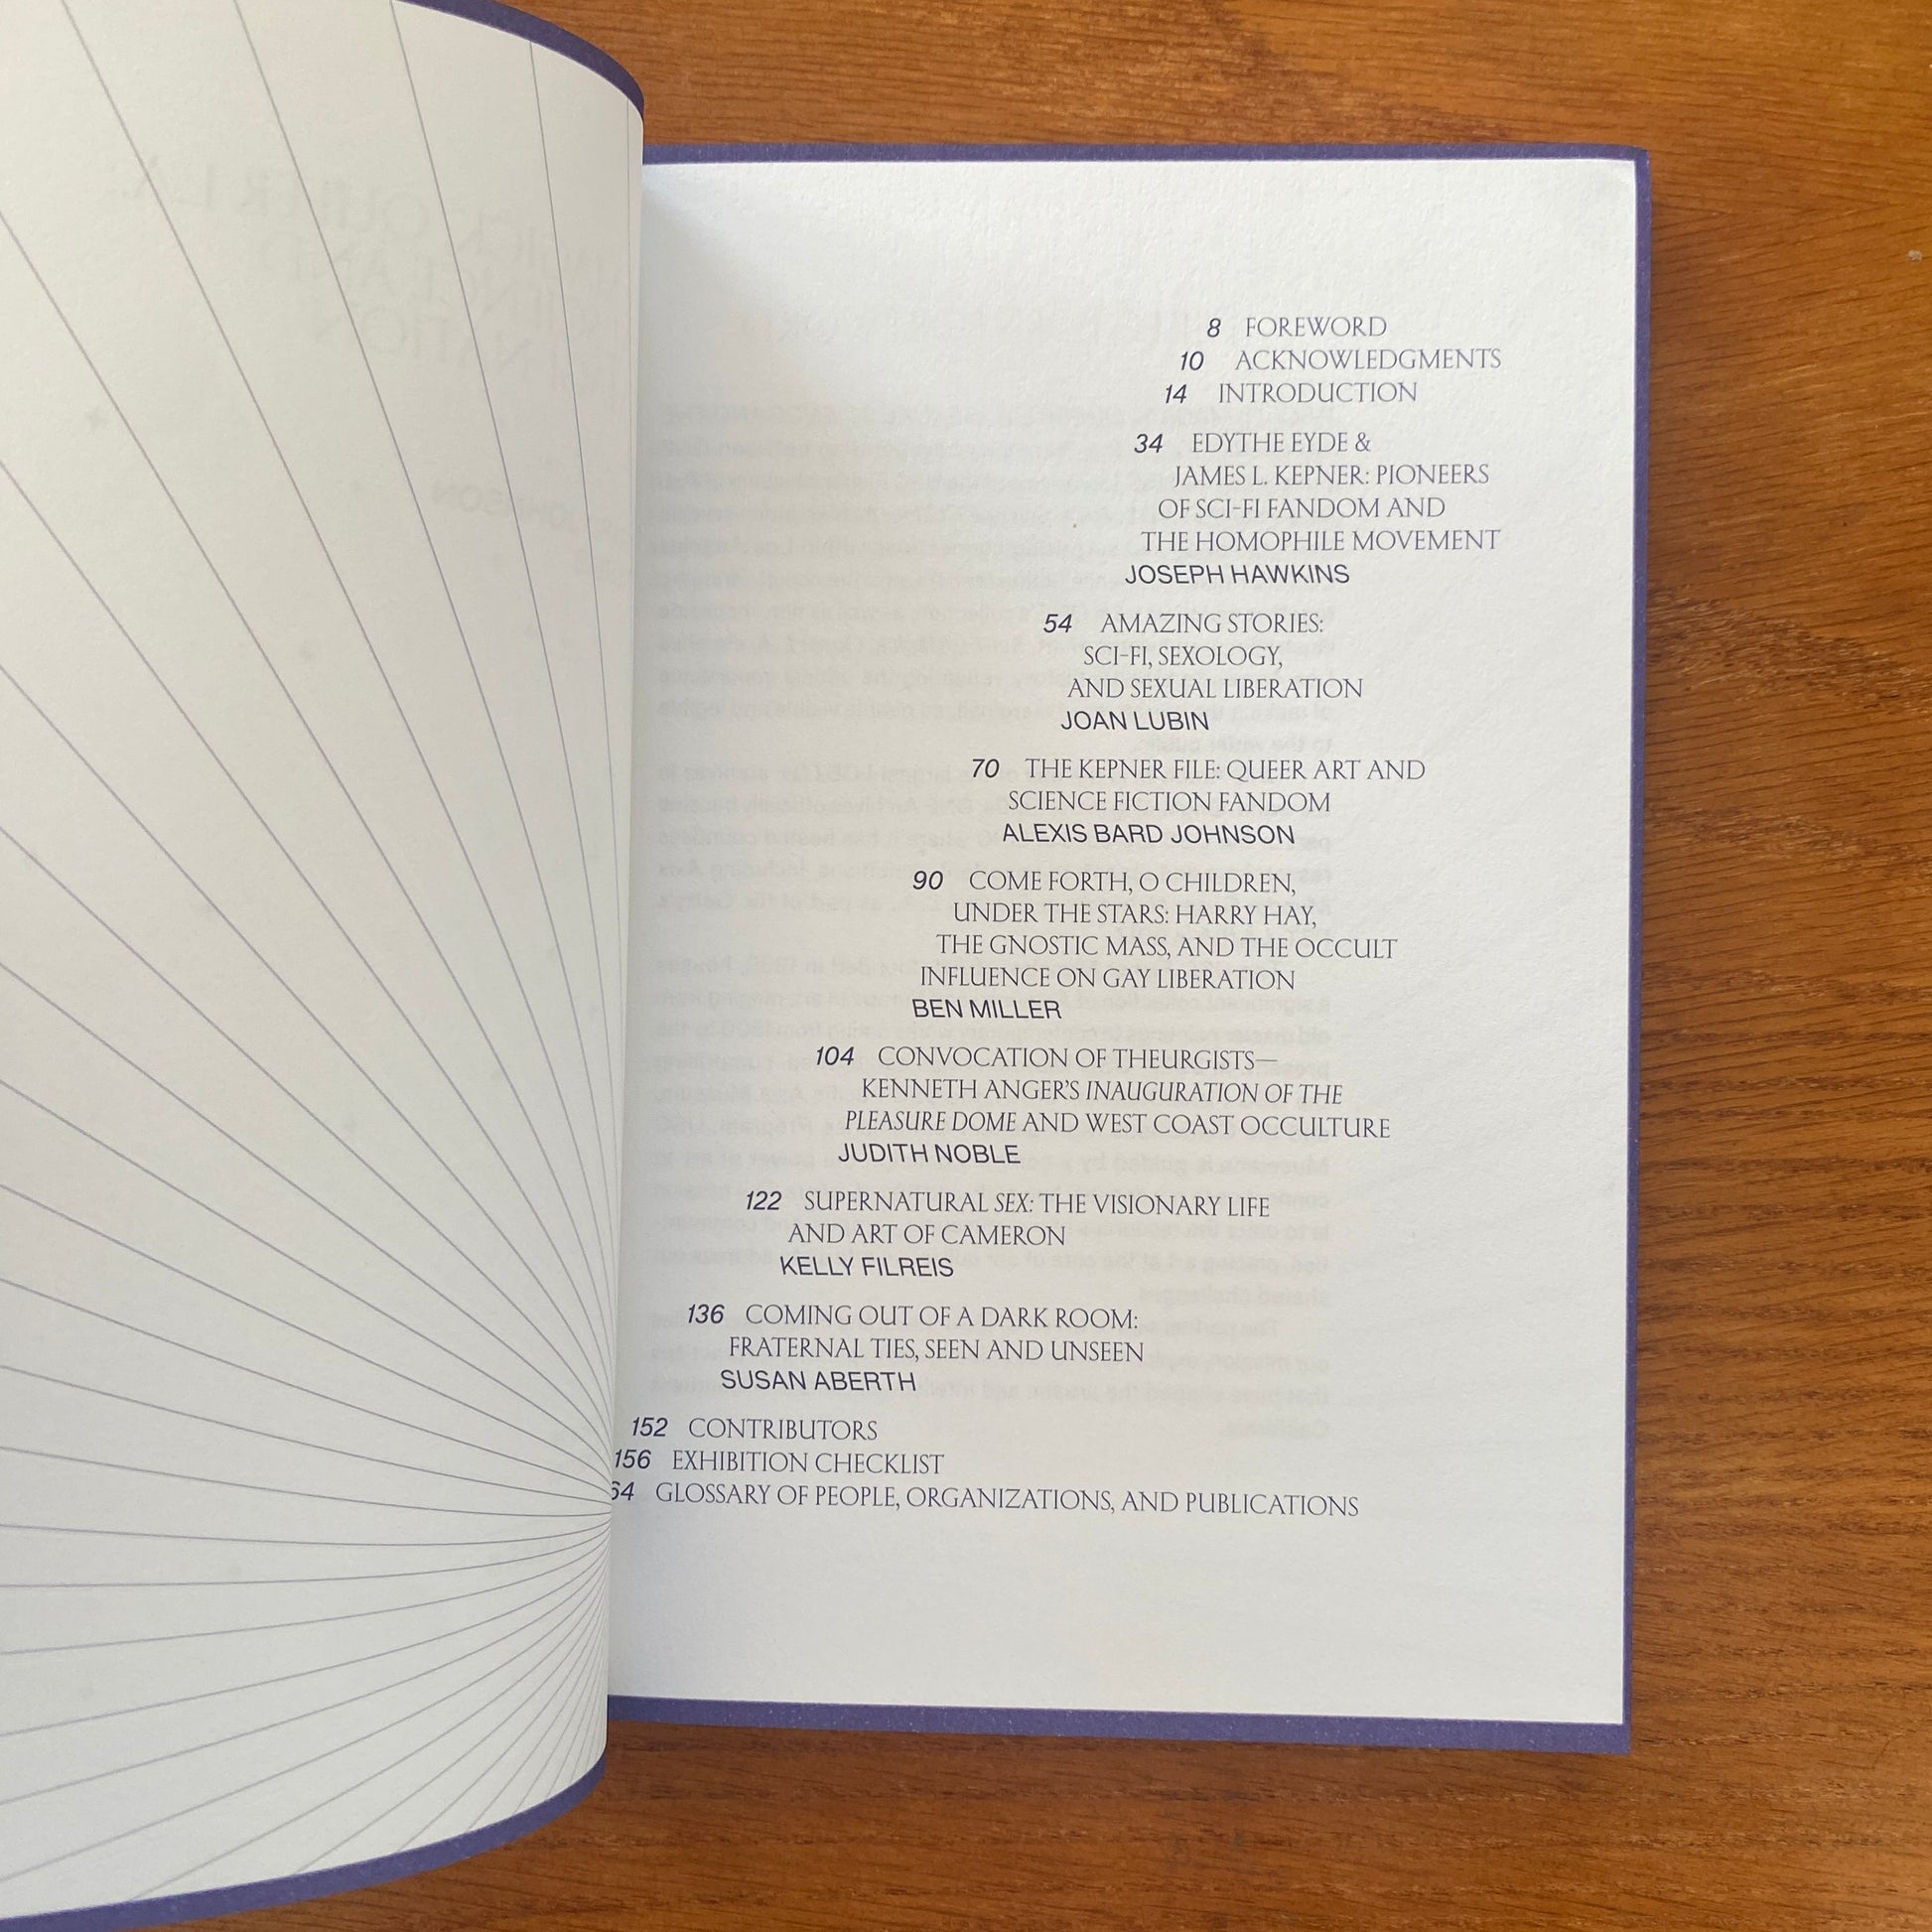 8 FOREWORD
10 ACKNOWLEDGMENTS
14 INTRODUCTION
34 EDYTHE EYDE &
JAMES L. KEPNER: PIONEERS
OF SCI-FI FANDOM AND
THE HOMOPHILE MOVEMENT
JOSEPH HAWKINS
54 AMAZING STORIES:
SCI-FI, SEXOLOGY,
AND SEXUAL LIBERATION
JOAN LUBIN
70 THE KEPNER FILE: QUEER ART AND
SCIENCE FICTION FANDOM
ALEXIS BARD JOHNSON
90 COME FORTH, O CHILDREN,
UNDER THE STARS: HARRY HAY,
THE GNOSTIC MASS, AND THE OCCULT
INFLUENCE ON GAY LIBERATION
BEN MILLER
104 CONVOCATION OF THEURGISTS—
KENNETH ANGER'S INAUGURATION OF THE
PLEASURE DOME AND WEST COAST OCCULTURE
JUDITH NOBLE
122 SUPERNATURAL SEX: THE VISIONARY LIFE
AND ART OF CAMERON
KELLY FILREIS
136 COMING OUT OF A DARK ROOM:
FRATERNAL TIES, SEEN AND UNSEEN
SUSAN ABERTH
152 CONTRIBUTORS
156 EXHIBITION CHECKLIST
64 GLOSSARY OF PEOPLE, ORGANIZATIONS, AND PUBLICATIONS